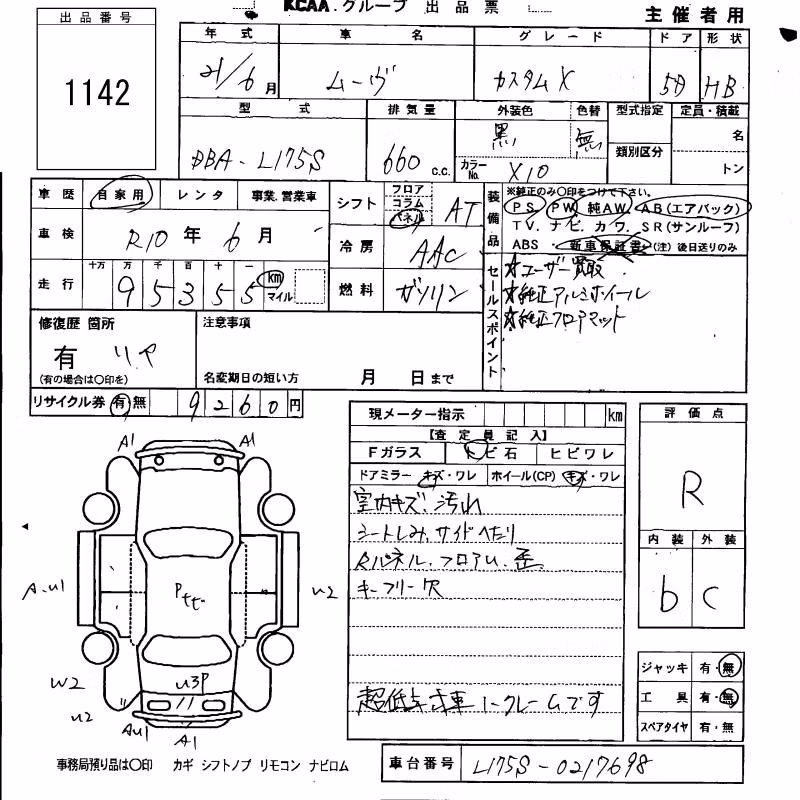 KCAA.グループ 出品票
主催者用
出品番号
1142
年式 車名 グレード ドア 形状
21/6月 ムーヴ カスタムX 5D HB
型式 排気量 外装色 色替 型式指定 定員・積載
DBA-L175S 660 c.c. 黒 無 名
カラーNo. X10 類別区分 トン
車歴 自家用 レンタ 事業.営業車
シフト フロア コラム パネル AT
車検 R10年6月
冷房 AAC
走行 十万 万 千 百 十 一
95355 km マイル
燃料 ガソリン
装備品 ※純正のみ〇印をつけて下さい。
PS PW 純AW AB(エアバック)
TV. ナビ. カワ. SR(サンルーフ)
ABS 新車保証書 (注)後日送りのみ
セールスポイント
☆ユーザー買取
☆純正アルミホイール
☆純正フロアマット
修復歴 箇所
有 リヤ
(有の場合は〇印を)
注意事項
名変期日の短い方 月 日まで
リサイクル券 有 無 9260円
現メーター指示 km
【査定員記入】
Fガラス トビ石 ヒビワレ
ドアミラー キズ・ワレ ホイール(CP) キズ・ワレ
室内キズ.汚れ
シートしみ.サイドへたり
Rパネル.フロアU.歪
キーフリー穴
ノークレームです
評価点
R
内装 外装
b C
ジャッキ 有・無
工具 有・無
スペアタイヤ 有・無
A1 A1
A.U1 U2
W2 U3P
U2
AU1 A1
事務局預り品は〇印 カギ シフトノブ リモコン ナビロム
車台番号 L175S-0217698